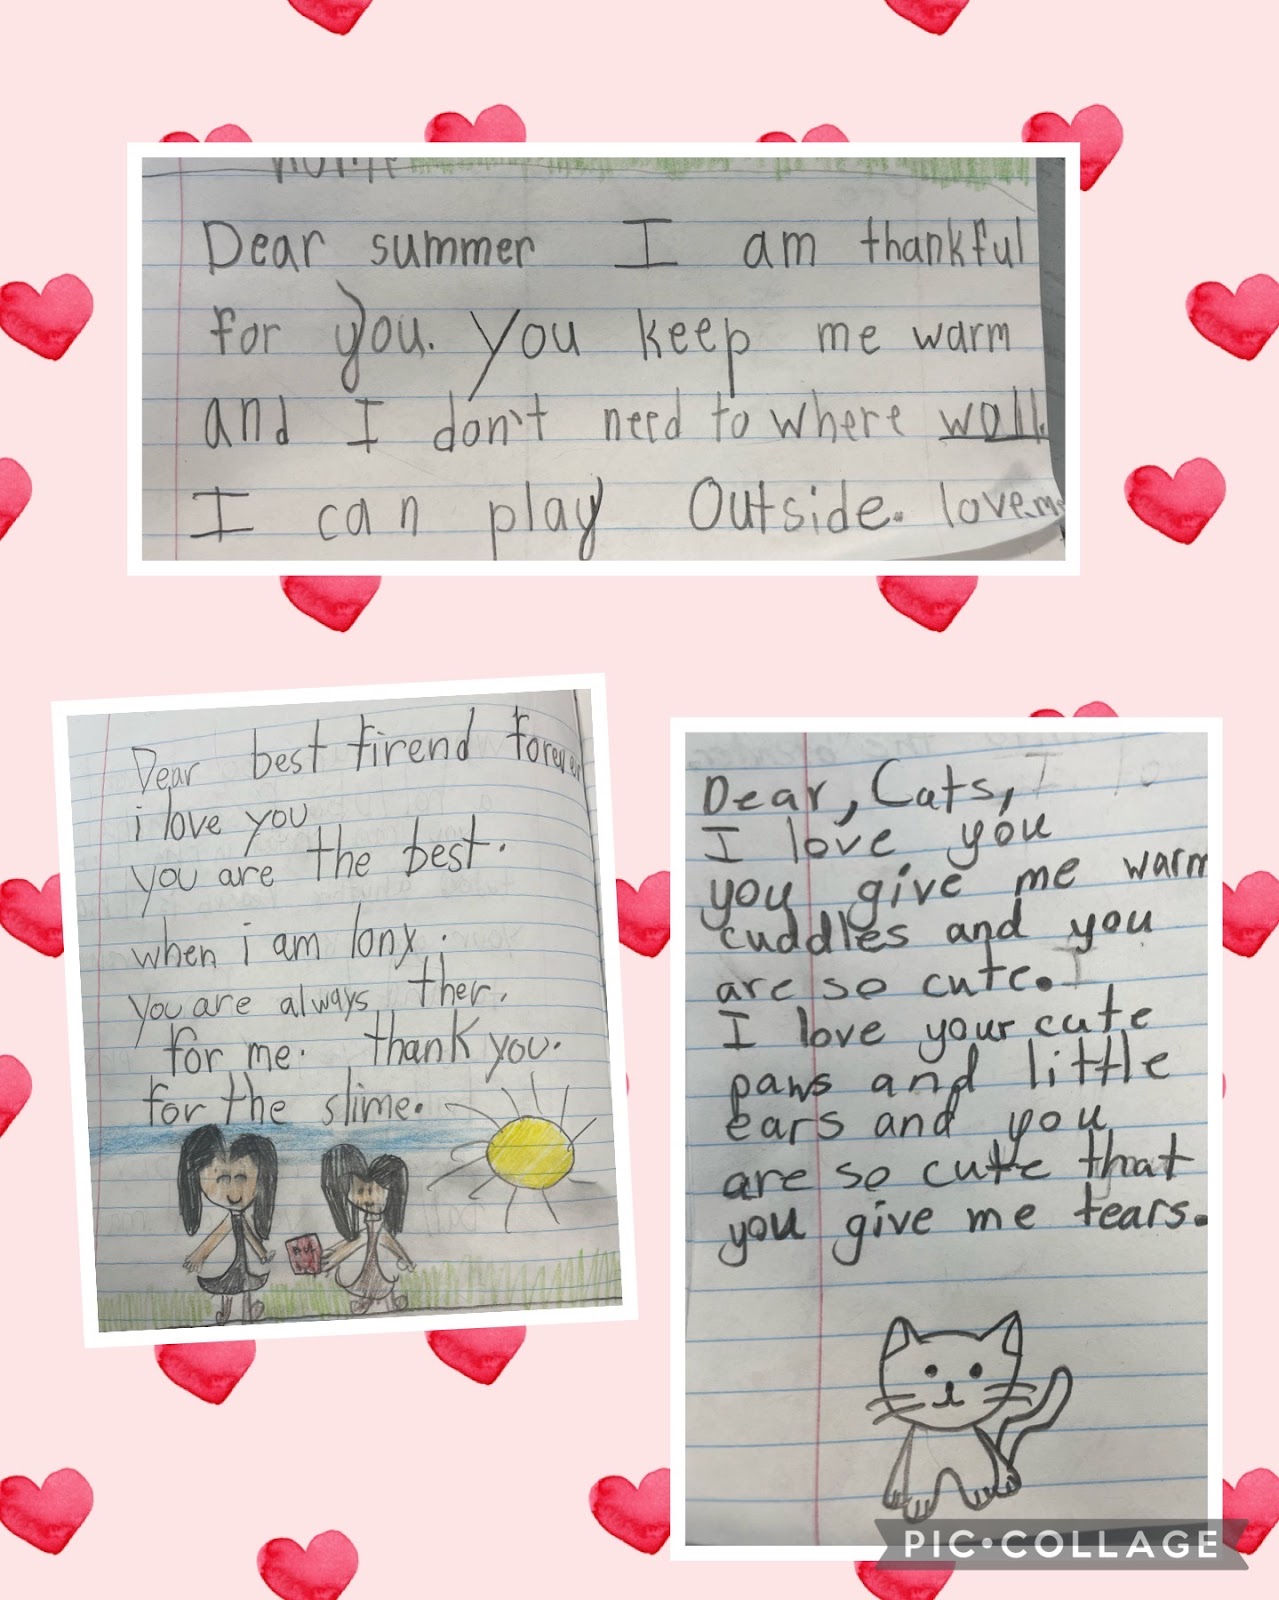 Dear summer I am thankful
for you. you keep me warm
and I don't need to where
I can play outside. love. me
Dear best firend forever
i love you
you are the best.
when i am lony.
you are always ther.
for me. thank you.
for the slime.
Dear, Cats, I
I love you
you give me warm
cuddles and you
are so cute. I
I love your cute
paws and little
ears and you
are so cute that
you give me tears.
PIC•COLLAGE